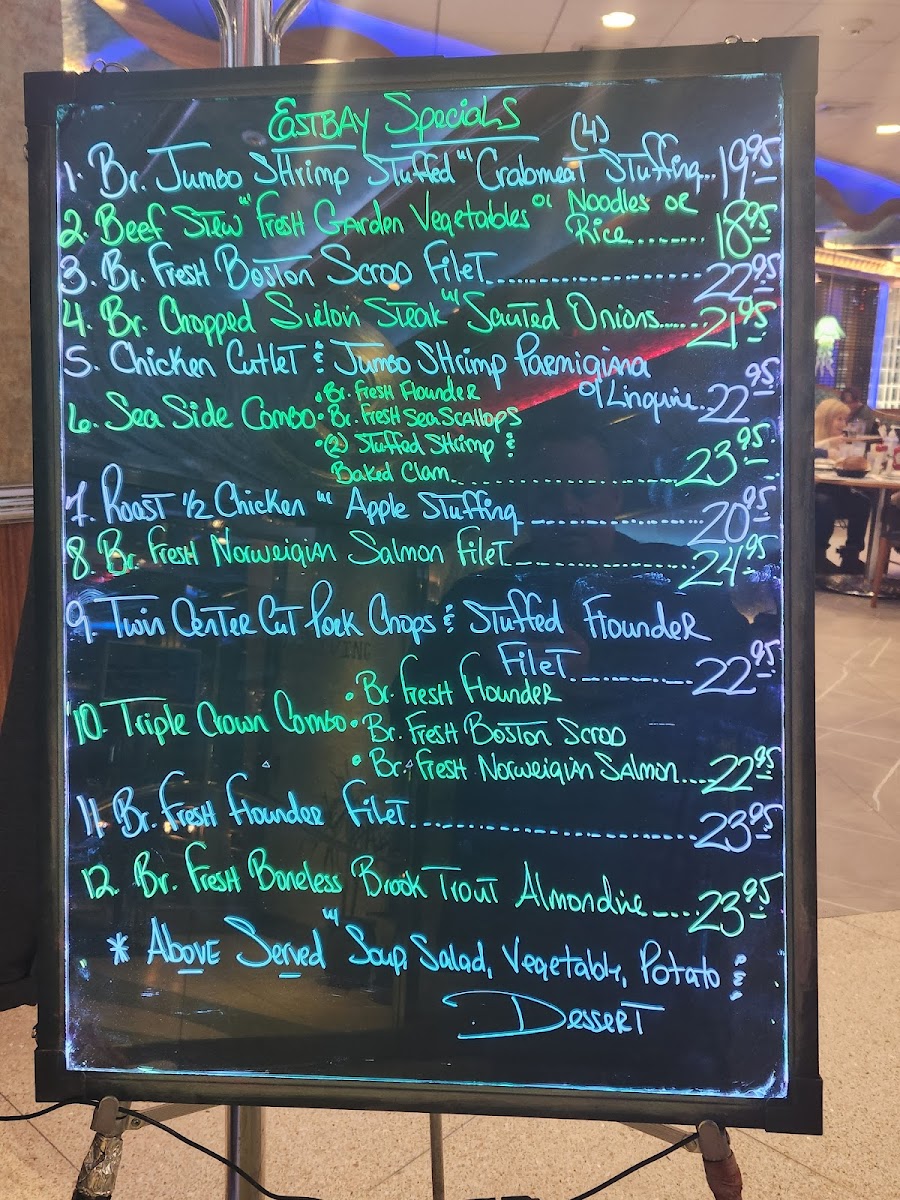 EASTBAY Specials
1. Br. Jumbo Shrimp Stuffed w/ Crabmeat Stuffing... 19.95
(4)
2. Beef Stew w/ Fresh Garden Vegetables o/ Noodles or
Rice........ 18.95
3. Br. Fresh Boston Scrod Filet........ 22.95
4. Br. Chopped Sirloin Steak w/ Sauted Onions...... 21.95
5. Chicken Cutlet & Jumbo Shrimp Parmigiana
o/ Linguine.. 22.95
6. Sea Side Combo • Br. Fresh Flounder
• Br. Fresh Sea Scallops
• (2) Stuffed Shrimp &
Baked Clam........ 23.95
7. Roast 1/2 Chicken w/ Apple Stuffing........ 20.95
8. Br. Fresh Norweigian Salmon Filet........ 24.95
9. Twin Center Cut Pork Chops & Stuffed Flounder
Filet........ 22.95
10. Triple Crown Combo • Br. Fresh Flounder
• Br. Fresh Boston Scrod
• Br. Fresh Norweigian Salmon..... 22.95
11. Br. Fresh Flounder Filet........ 23.95
12. Br. Fresh Boneless Brook Trout Almondine..... 23.95
* Above Served w/ Soup, Salad, Vegetable, Potato &
Dessert